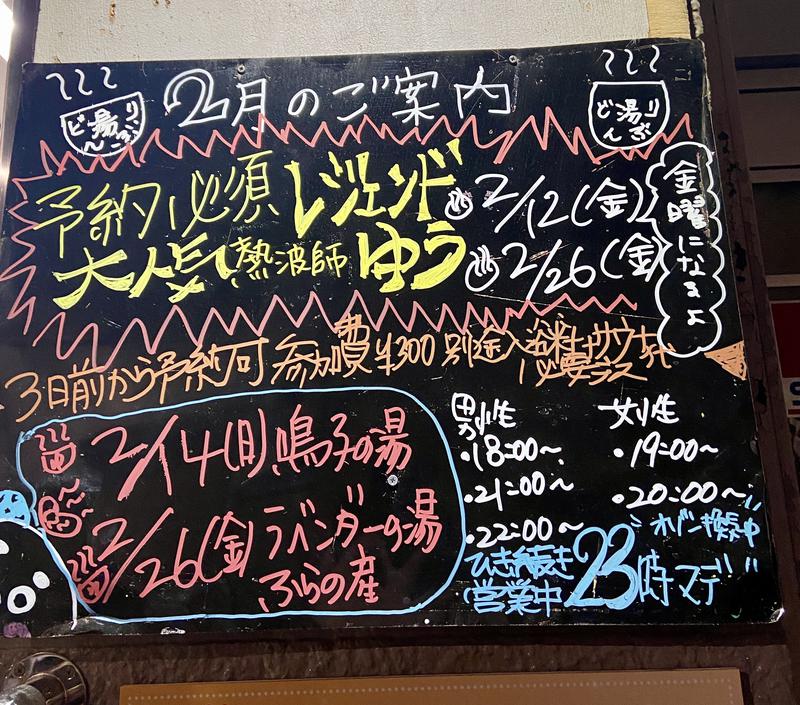 2月のご案内
湯どんぶり
湯どんぶり
予約必須 レジェンド
大人気 熱波師 ゆう
2/12(金)
2/26(金)
金曜になるよ
3日前から予約可 参加費¥300 別途入浴料+サウナ代
必要デス
2/14(日)鳴子の湯
2/26(金)ラベンダーの湯
ふらの産
男性
・18:00〜
・21:00〜
・22:00〜
女性
・19:00〜
・20:00〜
オゾン換気中
ひき続き
営業中
23時マデ